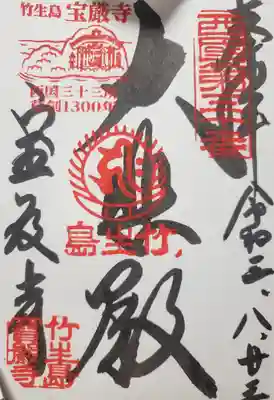 奉拝
西国第三十番
令和三、八、廿三
大悲殿
竹生島
竹生島 宝厳寺
西国三十三所
草創1300年
宝厳寺
竹生島
寶嚴寺